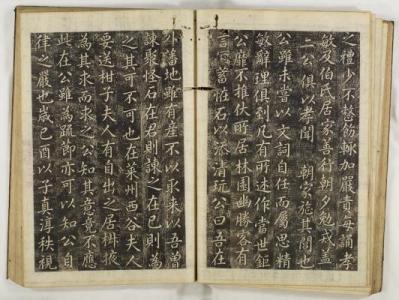 之禮少不替飭躬加嚴責每誦孝
敏及伯氏居家善行朝夕勉戒蓋
二公俱以孝聞 朝家旌其閭也
公雖未嘗以文詞自任而屬思精
敏辭理俱到凡有所述作當世鉅
公靡不推伏所居林園幽勝客有
言蓄恠石以添清玩公曰吾在
小藩地雖有産不以取來以吾曾
諫聚怪石在君則諫之在己則為
之其可不可也在萊州西谷夫人
要送柑子夫人有自出之居掖
為其求而求之公知其意竟不應
此在公雖為疏節亦可以知公自
律之嚴也歲己酉以子真淳秩視